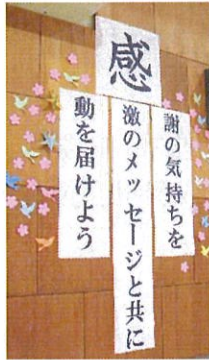 感
謝の気持ちを
激のメッセージと共に
動を届けよう